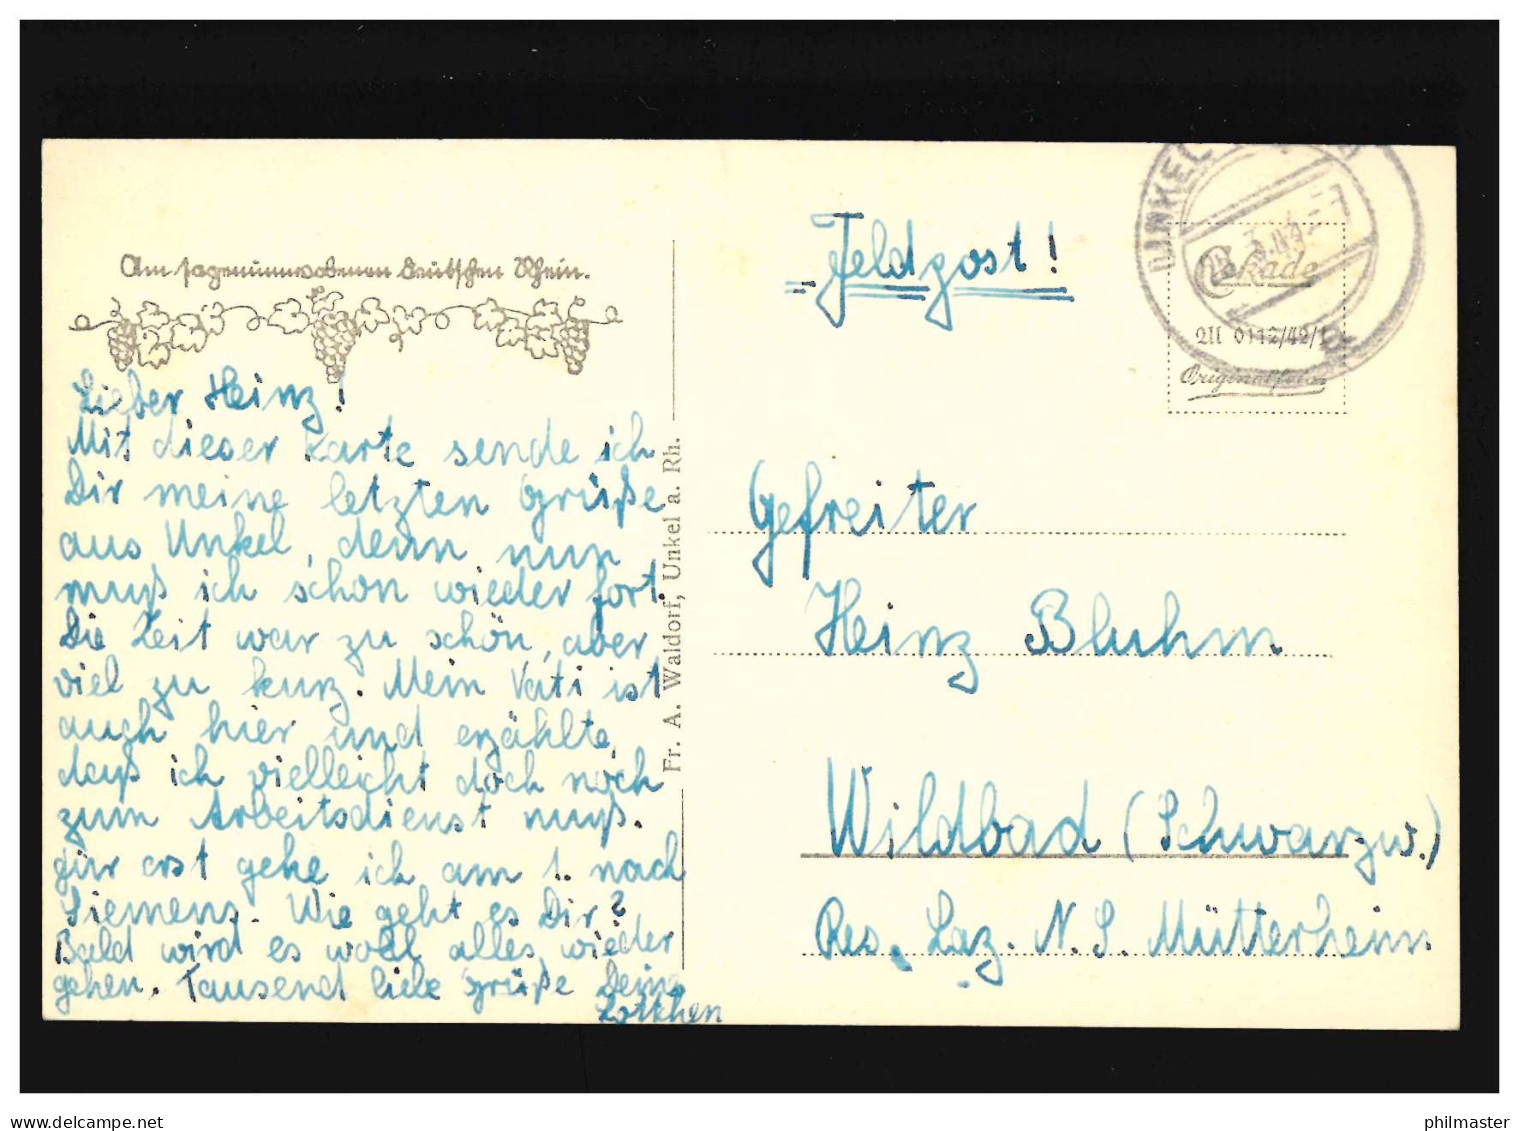 Am sagenumwobenen deutschen Rhein.
Lieber Heinz!
Mit dieser Karte sende ich
Dir meine letzten Grüße
aus Unkel, denn nun
muß ich schon wieder fort.
Die Zeit war zu schön, aber
viel zu kurz. Mein Vati ist
auch hier und erzählte,
daß ich vielleicht doch noch
zum Arbeitsdienst muß.
Für erst gehe ich am 1. nach
Siemens. Wie geht es Dir?
Bald wird es wohl alles wieder
gehen. Tausend liebe Grüße Deine
Lottchen
Fr. A. Waldorf, Unkel a. Rh.
Feldpost!
UNKEL
Cekade
2U 0112/42/1
Originalfoto
Gefreiter
Heinz Bluhm
Wildbad (Schwarzw.)
Res. Laz. N.S. Mütterheim
philmaster